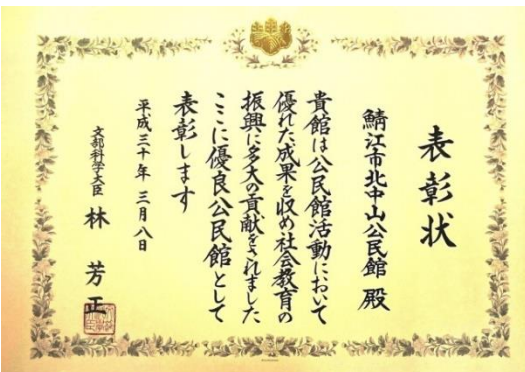 表彰状
鯖江市北中山公民館 殿
貴館は公民館活動において
優れた成果を収め社会教育の
振興に多大の貢献をされました
ここに優良公民館として
表彰します
平成三十年 三月八日
文部科学大臣 林 芳正